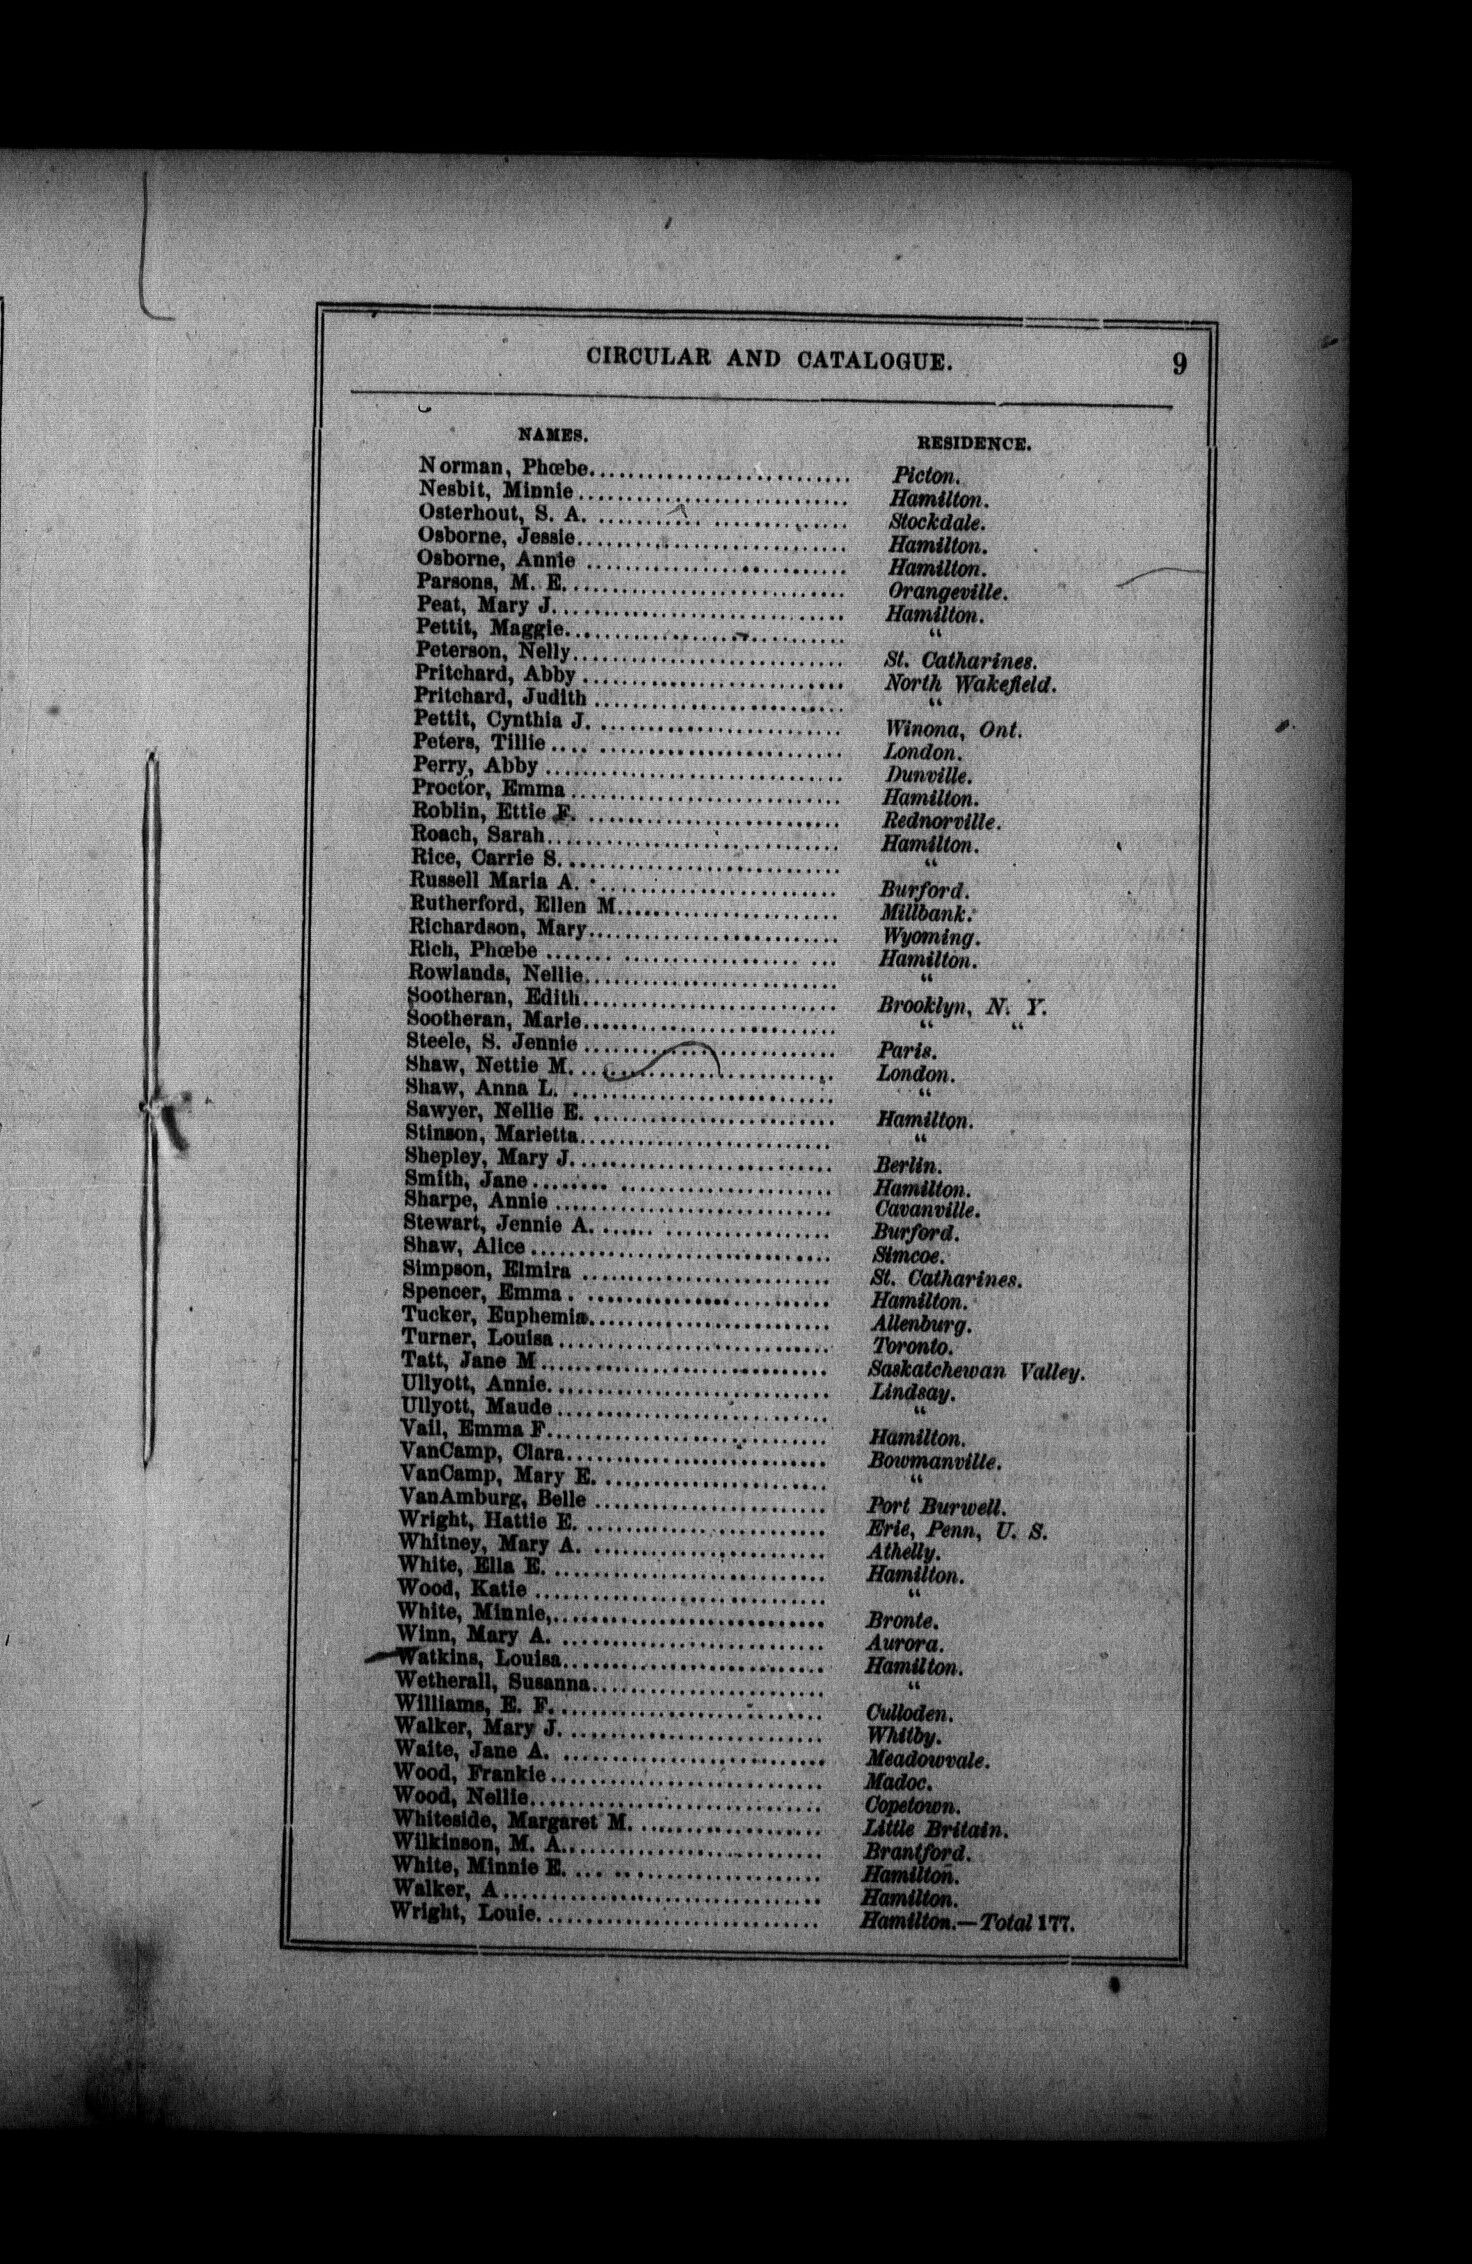 CIRCULAR AND CATALOGUE. 9
NAMES. RESIDENCE.
Norman, Phœbe............................ Picton.
Nesbit, Minnie............................ Hamilton.
Osterhout, S. A. ........... .............. Stockdale.
Osborne, Jessie............................ Hamilton.
Osborne, Annie ........................... Hamilton.
Parsons, M. E............................. Orangeville.
Peat, Mary J.............................. Hamilton.
Pettit, Maggie............................. “
Peterson, Nelly............................ St. Catharines.
Pritchard, Abby........................... North Wakefield.
Pritchard, Judith.......................... “
Pettit, Cynthia J. ......................... Winona, Ont.
Peters, Tillie .... ......................... London.
Perry, Abby ............................... Dunville.
Proctor, Emma ............................ Hamilton.
Roblin, Ettie F. .......................... Rednorville.
Roach, Sarah.............................. Hamilton.
Rice, Carrie S............................. “
Russell Maria A. ......................... Burford.
Rutherford, Ellen M....................... Millbank.
Richardson, Mary.......................... Wyoming.
Rich, Phœbe ....... .................. ... Hamilton.
Rowlands, Nellie.......................... “
Sootheran, Edith.......................... Brooklyn, N. Y.
Sootheran, Marie.......................... “ “
Steele, S. Jennie.......................... Paris.
Shaw, Nettie M. .......................... London.
Shaw, Anna L. ........................... “
Sawyer, Nellie E. ......................... Hamilton.
Stinson, Marietta.......................... “
Shepley, Mary J........................... Berlin.
Smith, Jane........ ...................... Hamilton.
Sharpe, Annie ............................ Cavanville.
Stewart, Jennie A. ...... ................. Burford.
Shaw, Alice ............................... Simcoe.
Simpson, Elmira .......................... St. Catharines.
Spencer, Emma . ......................... Hamilton.
Tucker, Euphemia......................... Allenburg.
Turner, Louisa ............................ Toronto.
Tatt, Jane M .............................. Saskatchewan Valley.
Ullyott, Annie............................. Lindsay.
Ullyott, Maude ............................ “
Vail, Emma F............................. Hamilton.
VanCamp, Clara........................... Bowmanville.
VanCamp, Mary E. ....................... “
VanAmburg, Belle ........................ Port Burwell.
Wright, Hattie E. ......................... Erie, Penn, U. S.
Whitney, Mary A. ........................ Athelly.
White, Ella E. ............................ Hamilton.
Wood, Katie .............................. “
White, Minnie,............................ Bronte.
Winn, Mary A. ........................... Aurora.
Watkins, Louisa........................... Hamilton.
Wetherall, Susanna........................ “
Williams, E. F. ........................... Culloden.
Walker, Mary J. .......................... Whitby.
Waite, Jane A. ........................... Meadowvale.
Wood, Frankie............................ Madoc.
Wood, Nellie.............................. Copetown.
Whiteside, Margaret M. ................... Little Britain.
Wilkinson, M. A........................... Brantford.
White, Minnie E. ... .. ................... Hamilton.
Walker, A................................. Hamilton.
Wright, Louie............................. Hamilton.—Total 177.